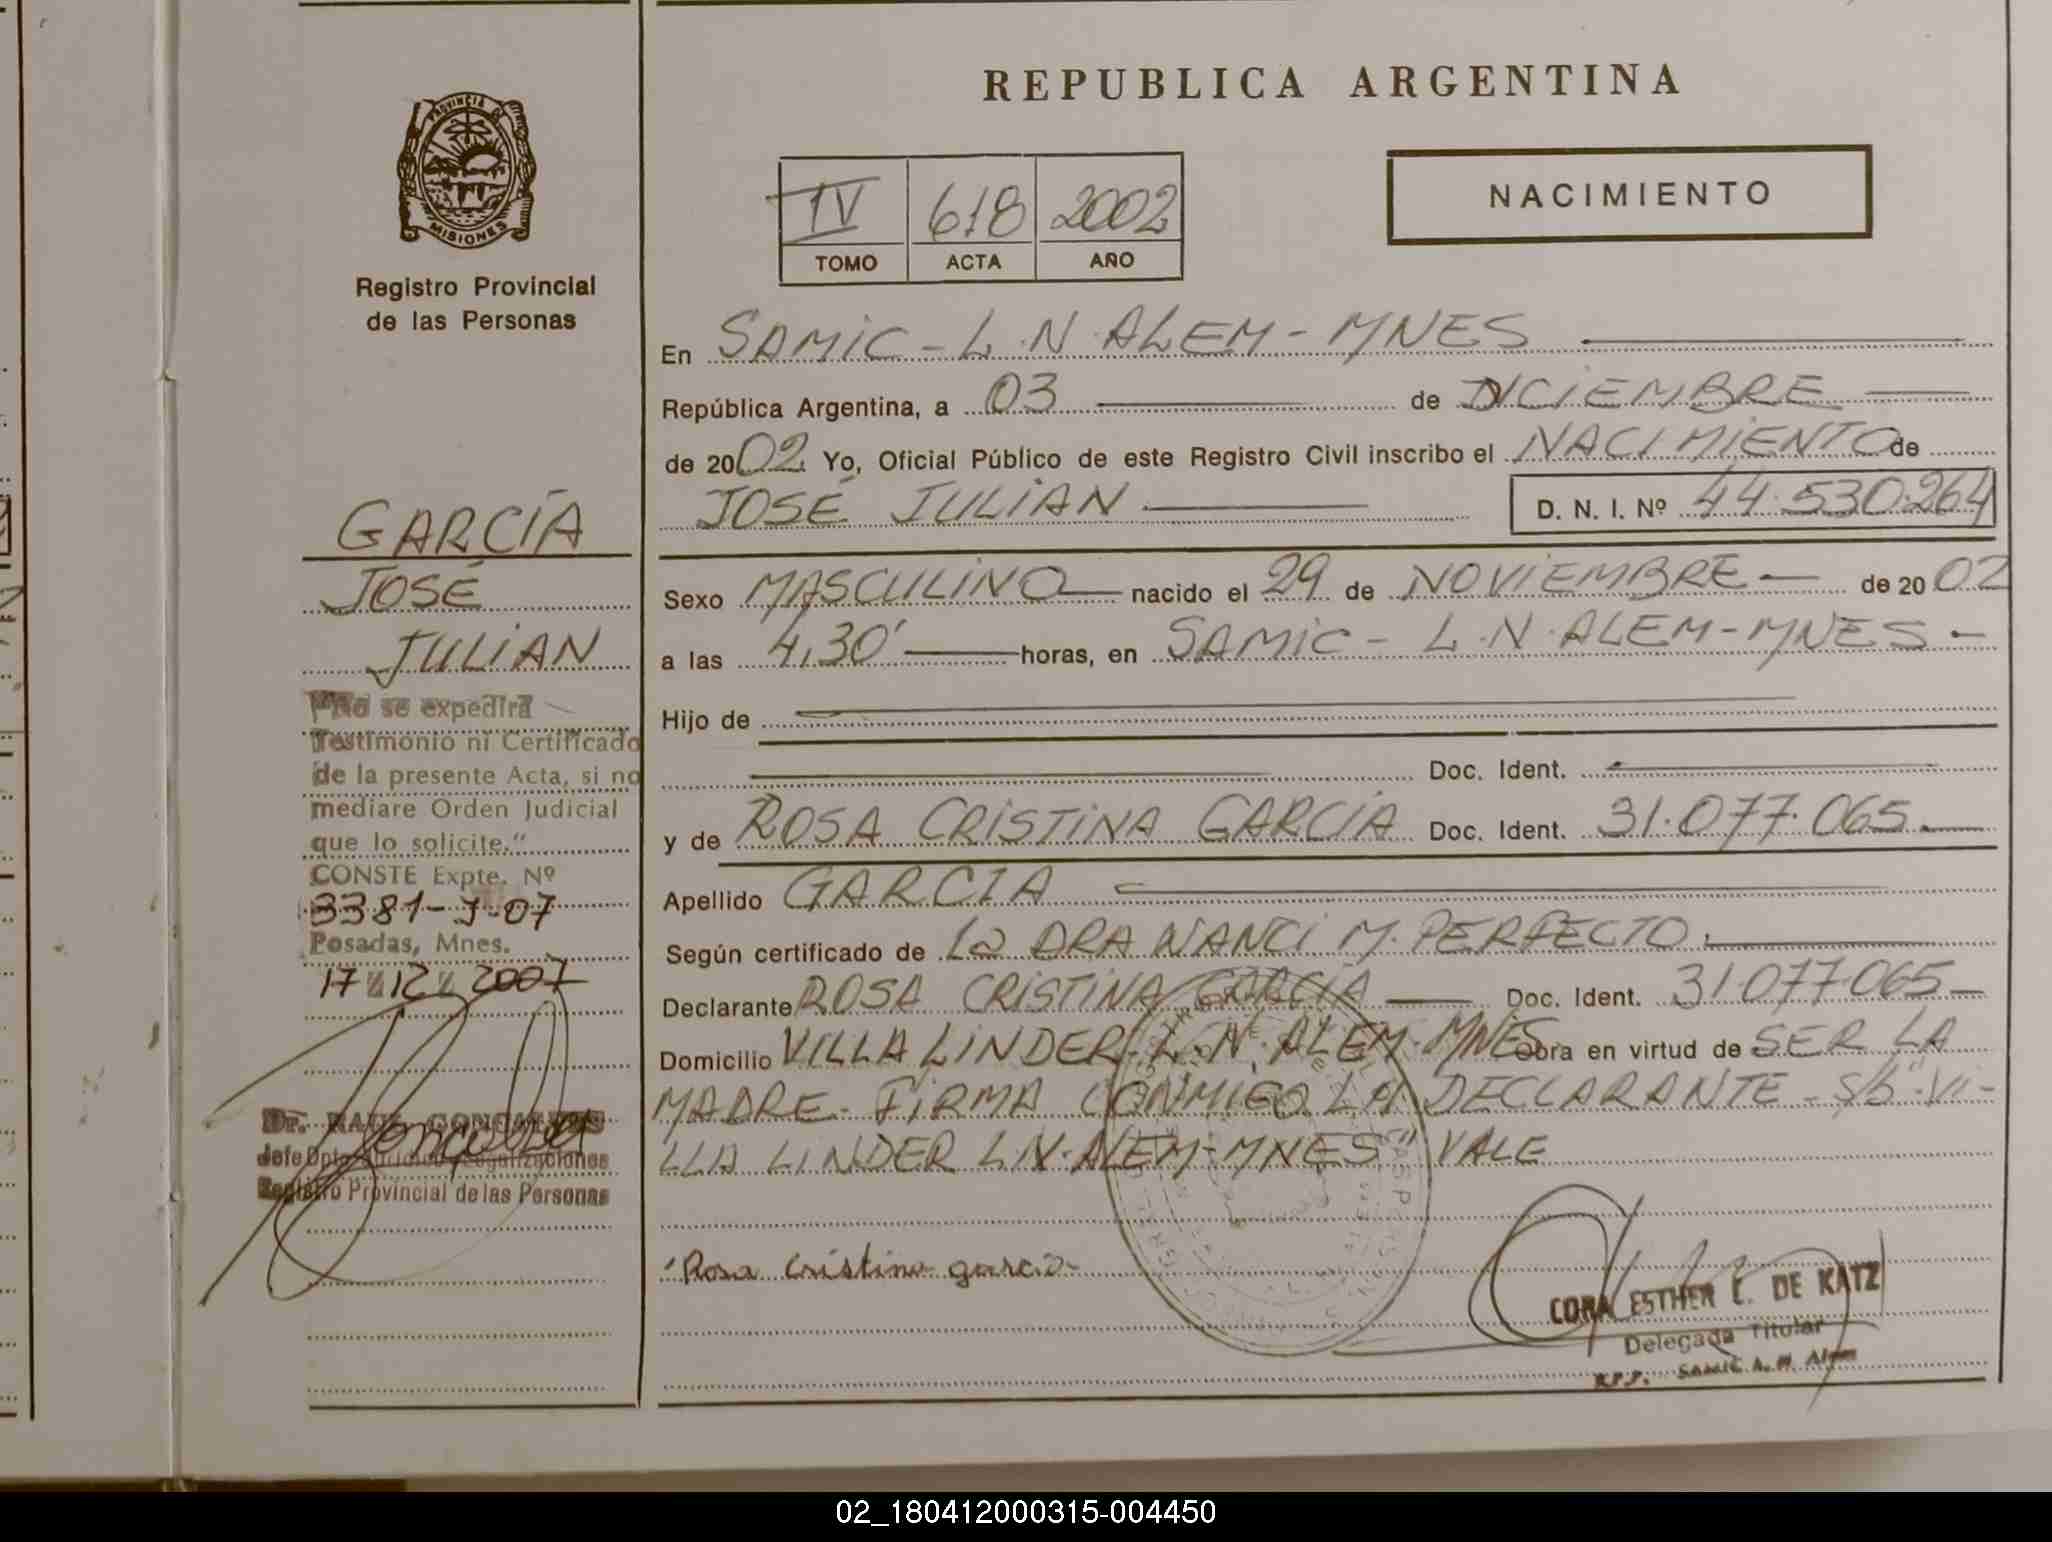 REPUBLICA ARGENTINA
NACIMIENTO
IV 618 2002
TOMO ACTA AÑO
PROVINCIA
MISIONES
Registro Provincial
de las Personas
GARCÍA
JOSÉ
JULIAN
No se expedirá
Testimonio ni Certificado
de la presente Acta, si no
mediare Orden Judicial
que lo solicite."
CONSTE Expte. Nº
3381-J-07
Posadas, Mnes.
17 12 2007
Dr. RAUL
Jefe Dpto.
Registro Provincial de las Personas
En SAMIC - L.N. ALEM - MNES
República Argentina, a 03 de DICIEMBRE
de 2002 Yo, Oficial Público de este Registro Civil inscribo el NACIMIENTO de
JOSÉ JULIAN D. N. I. Nº 44.530.264
Sexo MASCULINO nacido el 29 de NOVIEMBRE de 2002
a las 4,30' horas, en SAMIC - L.N. ALEM - MNES -
Hijo de
Doc. Ident.
y de ROSA CRISTINA GARCÍA Doc. Ident. 31.077.065.
Apellido GARCIA
Según certificado de La DRA NANCI M. PERFECTO.
Declarante ROSA CRISTINA GARCÍA Doc. Ident. 31.077.065
Domicilio VILLA LINDER. L.N. ALEM. MNES Obra en virtud de SER LA
MADRE. FIRMA CONMIGO LA DECLARANTE - S/b "VI-
LLA LINDER LN. ALEM - MNES" VALE
Rosa Cristina garcia
CORA ESTHER L. DE KATZ
Delegada Titular
R.P.P. SAMIC L. N. Alem
02_180412000315-004450